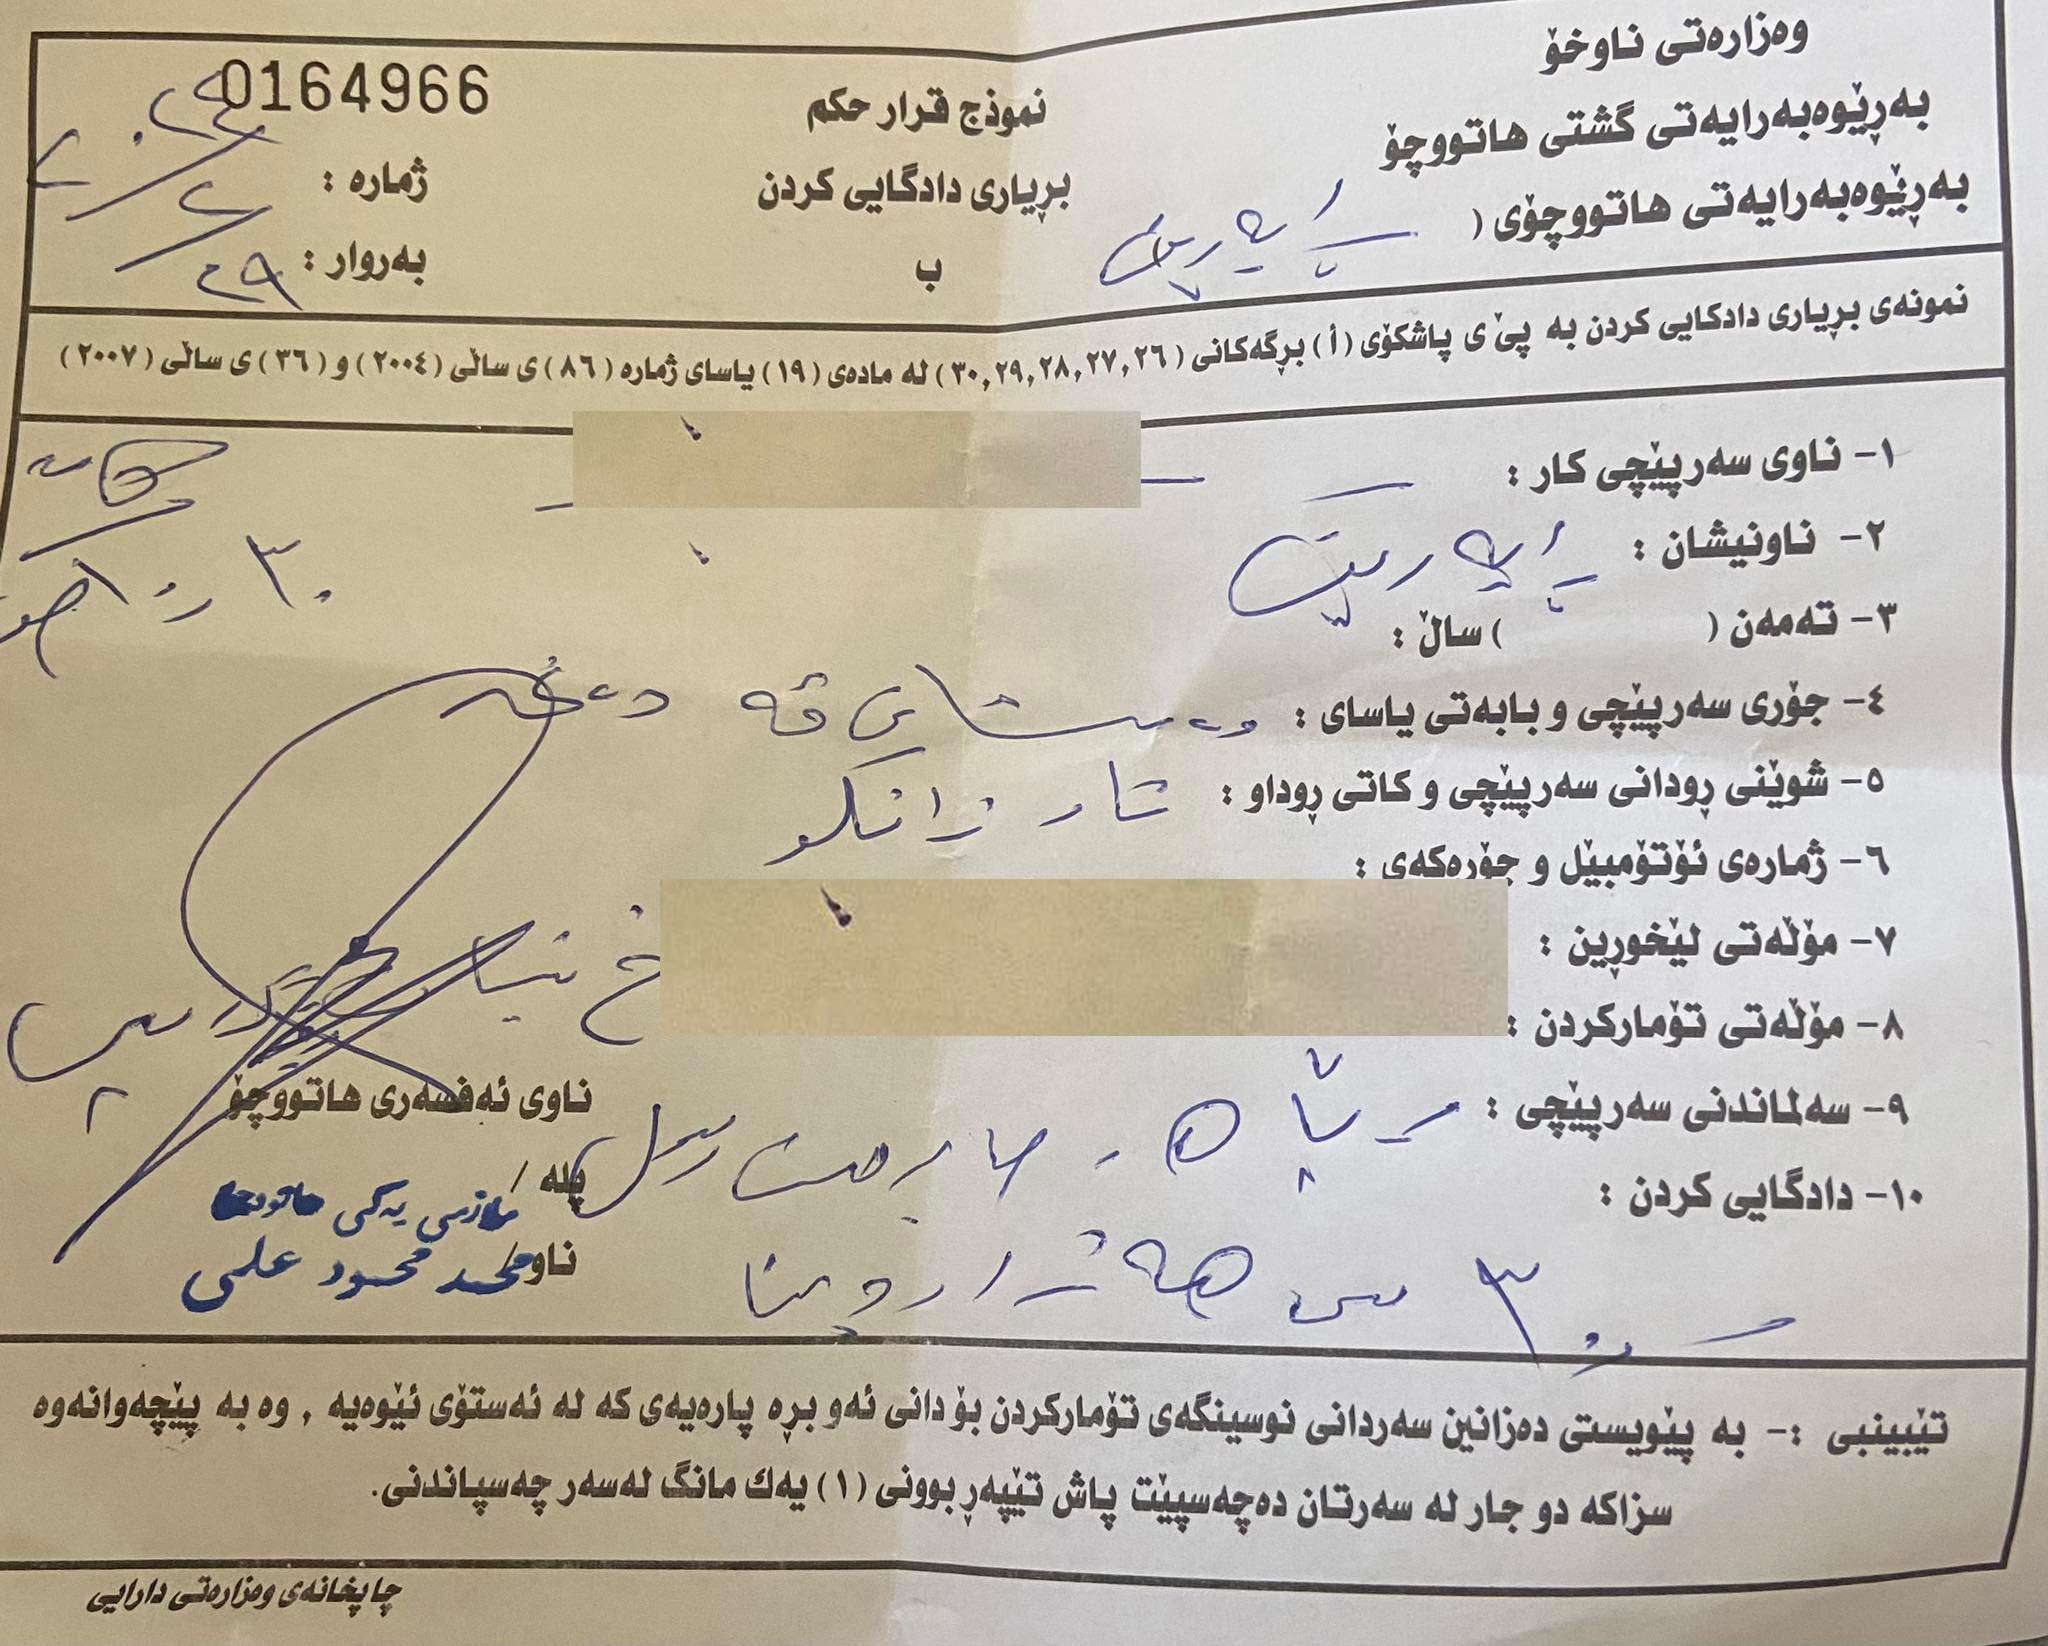 وەزارەتی ناوخۆ
بەڕێوەبەرایەتی گشتی هاتووچۆ
بەڕێوەبەرایەتی هاتووچۆی ( راپەرین
نموذج قرار حكم
بڕیاری دادگایی کردن
ب
0164966
ژمارە :
بەروار :
٢٠٢٤/٢/٢٩
نمونەی بڕیاری دادکایی کردن بە پێ ی پاشکۆی (أ) بڕگەکانی (٣٠,٢٩,٢٨,٢٧,٢٦) لە مادەی (١٩) یاسای ژمارە (٨٦) ی ساڵی (٢٠٠٤) و (٣٦) ی ساڵی (٢٠٠٧)
١- ناوی سەرپێچی کار :
٢- ناونیشان : راپەرین
٣- تەمەن ( ) ساڵ :
٤- جۆری سەرپێچی و بابەتی یاسای : وەستانی قەدەغە
٥- شوێنی ڕودانی سەرپێچی و کاتی ڕوداو : شار زانکۆ
٦- ژمارەی ئۆتۆمبێل و جۆرەکەی :
٧- مۆڵەتی لێخوڕین :
٨- مۆڵەتی تۆمارکردن :
٩- سەلماندنی سەرپێچی :
١٠- دادگایی کردن :
٣٠ سی هەزار دینار
ناوی ئەفسەری هاتووچۆ
پلە / ملازمی یەکی هاتووچۆ
ناو/ محمد محمود علی
تێبینبی :- بە پێویستی دەزانین سەردانی نوسینگەی تۆمارکردن بۆ دانی ئەو بڕە پارەیەی کە لە ئەستۆی ئێوەیە , وە بە پێچەوانەوە
سزاکە دو جار لە سەرتان دەچەسپێت پاش تێپەڕبوونی (١) یەك مانگ لەسەر چەسپاندنی.
چاپخانەی وەزارەتی دارایی